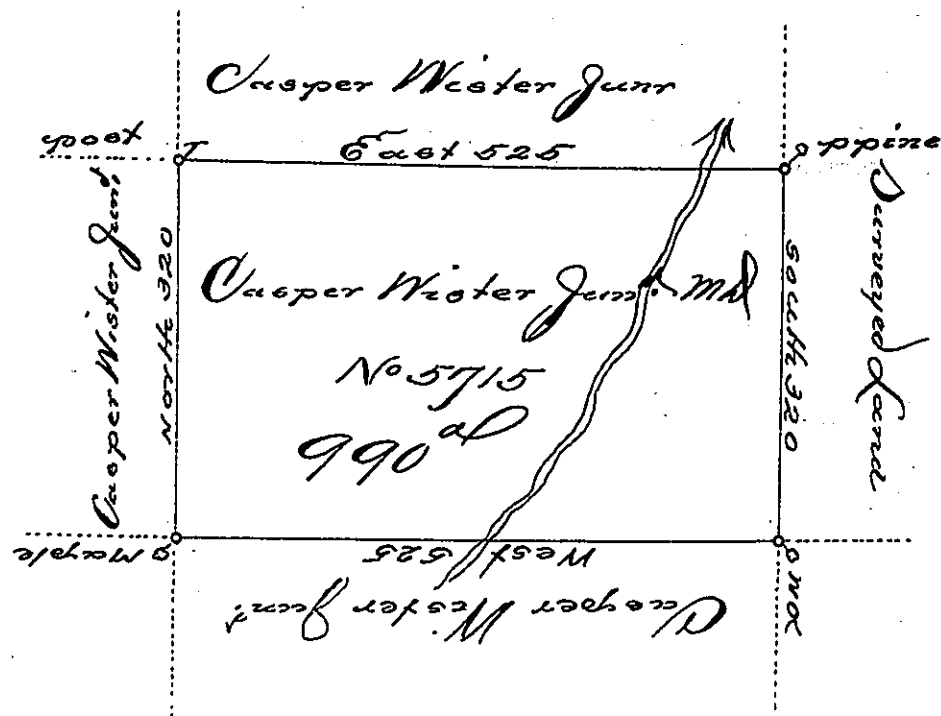 Casper Wister Junr
post
East 525
ppine
Casper Wister Junr.
North 320
Casper Wister Junr. Md
No 5715
990 al
South 320
Surveyed Land
Maple
West 525
WO
Casper Wister Junr.